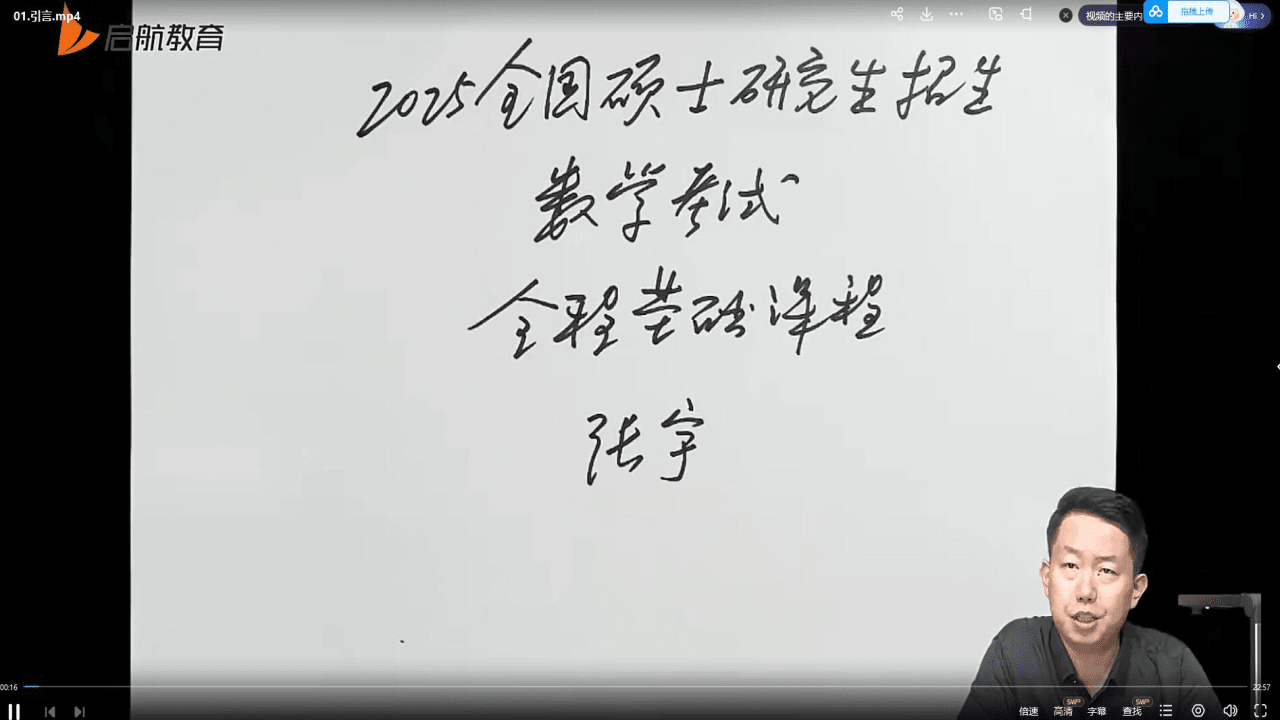 01.引言.mp4
视频的主要内
拖拽上传
Hi
启航教育
2025全国硕士研究生招生
数学考试
全程基础课程
张宇
00:16
22:57
倍速
高清
SWP
字幕
查找
SWP